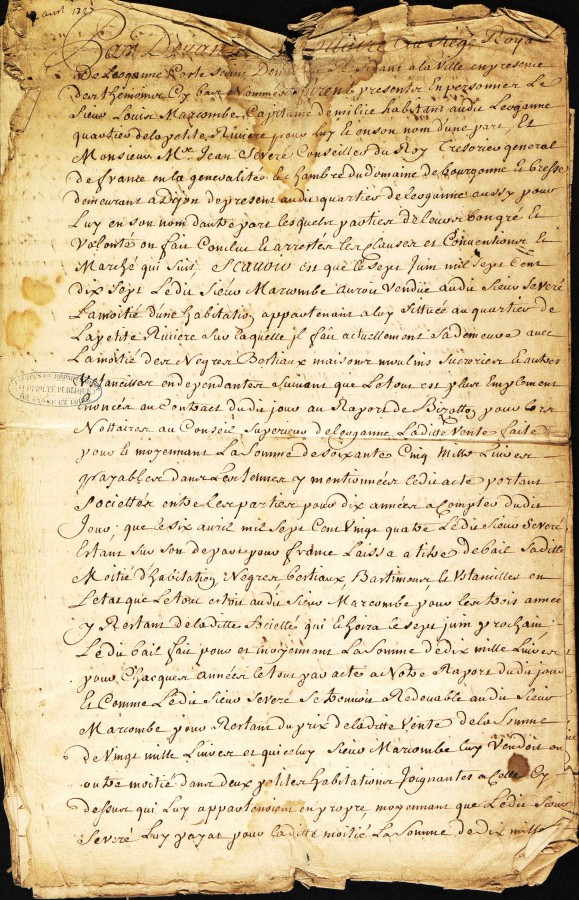 avril 1727
Par Devant Nottaire au siege Royal
De Leoganne Residant a la Ville en presence
Des themoins Cy bas Nommes furent presents En personnes Le
Sieur Louis Marcombe, Capitaine de milice habitant audit Leoganne
quartier de la petite Riviere pour Luy et en son nom dune part, Et
Monsieur Mre. Jean Severé Conseiller du Roy Tresorier general
de france en la generalité et Chambre du Domaine de Bourgogne Et Bresse
demeurant a Dijon de present audit quartier de Leoganne aussy pour
Luy en son nom dautre part Lesquels parties de Leurs bon gré Et
Volonté on fait Conclut Et arrestés les clauses et Conventions Et
Marché qui Suit Scavoir est que le Sept Juin mil Sept Cent
dix Sept Ledit Sieur Marcombe auroit Vendue audit Sieur Severé
La moitié d'une habitation appartenant a luy Sittuée au quartier de
La petite Riviere Sur laquelle jl fait actuellement Sa demeure avec
La moitié des Negres Bestiaux maisons moulins Sucreries Et autres
Vstancilles en dependantes Suivant que Le tout est plus Emplement
Enoncés au Contract dudit jour au Raport de Bizotton pour lors
Nottaires au Conseil Superieur de Leoganne Laditte Vente faite
pour Le moyennant La Somme de Soixante Cinq Mille Livres
payables dans Les termes y mentionnées Ledit acte portant
Societtés entre Les parties pour dix années a Compter dudit
Jour; que le Six avril mil Sept Cent Vingt quatre Ledit Sieur Severé
Estant Sur Son depart pour france Laissa a titre de bail Saditte
Moitié d'habitation Negres bestiaux, Bastiments, et Vstancilles en
Letat que Le tout estoit audit Sieur Marcombe pour Les trois années
y Restant de laditte Societté qui Echoira Le Sept juin prochain
Ledit bail fait pour et moyennant La Somme de dix mille Livres
pour Chacques années Le tout par acte a Notre Raport dudit jour
Et Comme Ledit Sieur Severé Se trouvoit Redevable audit Sieur
Marcombe pour Restant du prix de laditte Vente de la Somme
de Vingt mille Livres et qui celuy Sieur Marcombe Luy Vendoit en
outre moitié dans deux petites habitations Joignantes a Celle Cy
dessus qui Luy appartenoient en propre, moyennant que Ledit Sieur
Severé Luy payat pour laditte moitié La Somme de dix mille